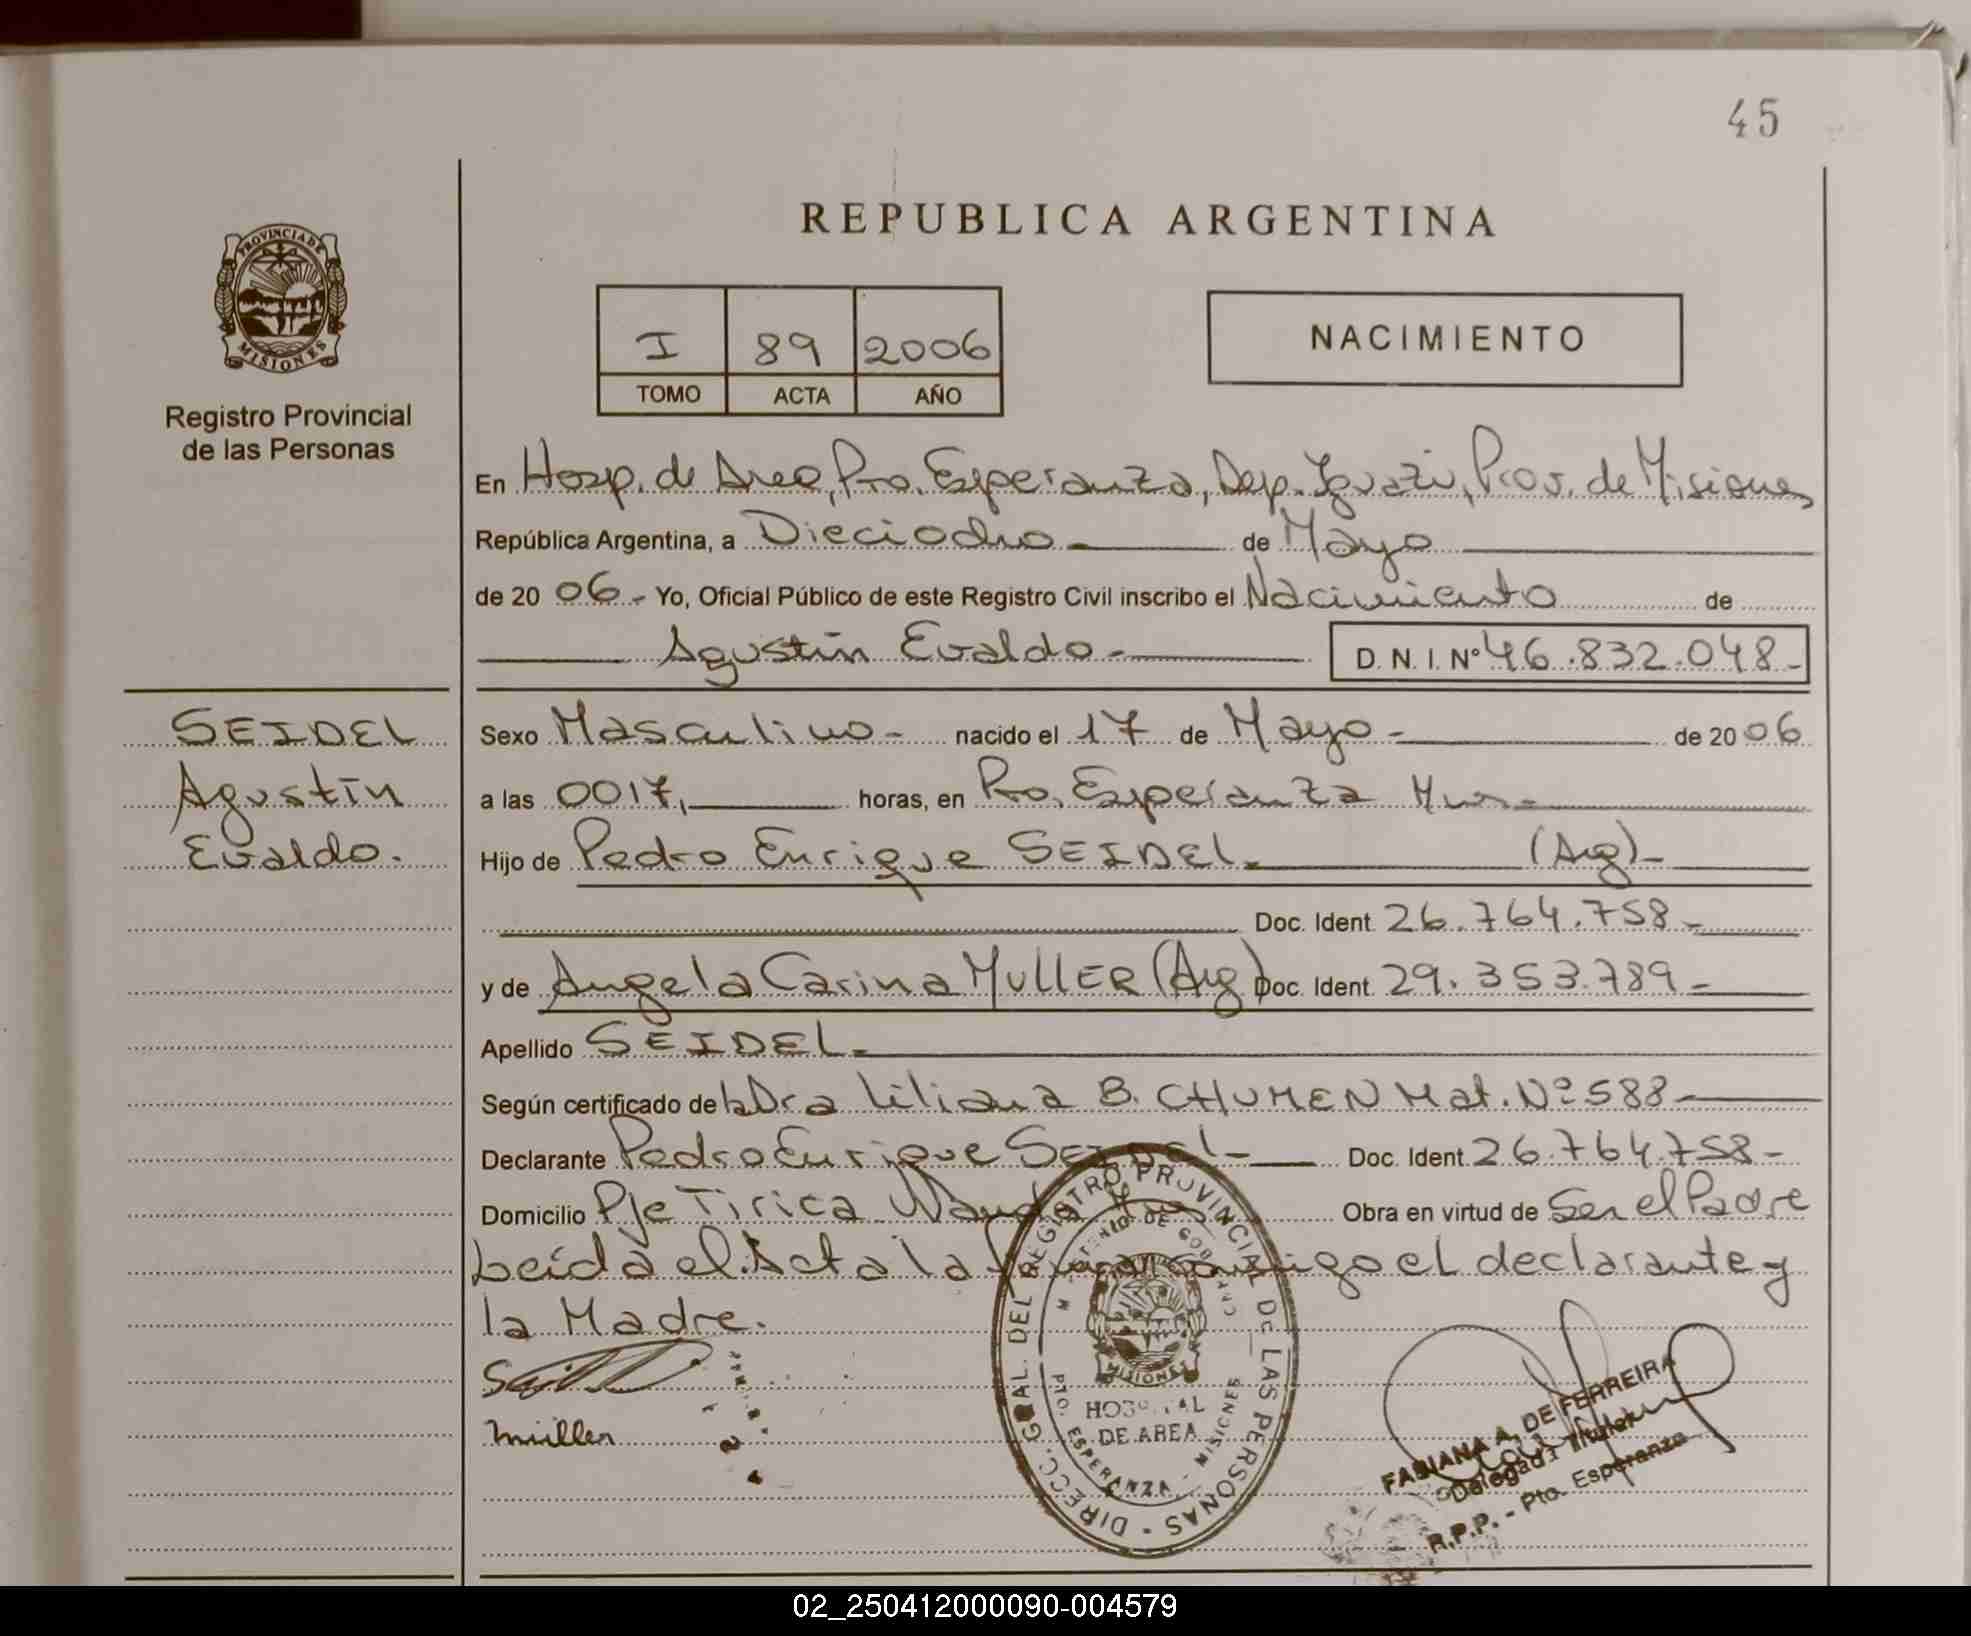 45
REPUBLICA ARGENTINA
PROVINCIA DE
MISIONES
Registro Provincial
de las Personas
I 89 2006
TOMO ACTA AÑO
NACIMIENTO
En Hosp. de Area, Pto. Esperanza, Dep. Iguazú, Prov. de Misiones
República Argentina, a Dieciocho de Mayo
de 20 06 - Yo, Oficial Público de este Registro Civil inscribo el Nacimiento de
Agustín Evaldo - D. N. I. Nº 46.832.048 -
SEIDEL
Agustín
Evaldo.
Sexo Masculino - nacido el 17 de Mayo - de 20 06
a las 0017, horas, en Pto. Esperanza Mnes -
Hijo de Pedro Enrique SEIDEL - (Arg) -
Doc. Ident. 26.764.758 -
y de Angela Carina MULLER (Arg) Doc. Ident. 29.353.789 -
Apellido SEIDEL -
Según certificado de la Dra Liliana B. CHUMEN Mat. Nº 588 -
Declarante Pedro Enrique SEIDEL - Doc. Ident. 26.764.758 -
Domicilio Pje Tirica Wanda Obra en virtud de Ser el Padre
Leída el Acta la firman conmigo el declarante y
la Madre.
müller
DIRECC. GRAL. DEL REGISTRO PROVINCIAL DE LAS PERSONAS
MISIONES
HOSPITAL
DE AREA
PTO. ESPERANZA - MISIONES
FABIANA A. DE FERREIRA
Delegada Titular
R.P.P. - Pto. Esperanza
02_250412000090-004579